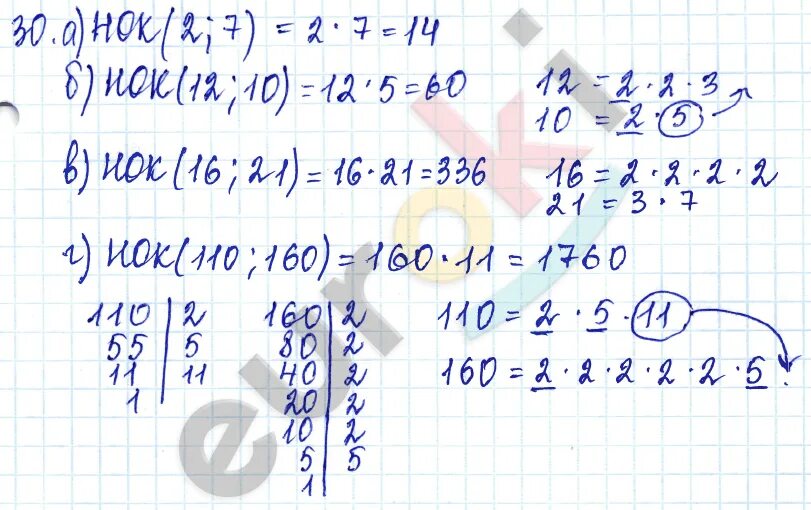 30. а) НОК(2;7) = 2 · 7 = 14
б) НОК(12;10) = 12 · 5 = 60
12 = 2 · 2 · 3
10 = 2 · 5
в) НОК(16;21) = 16 · 21 = 336
16 = 2 · 2 · 2 · 2
21 = 3 · 7
г) НОК(110;160) = 160 · 11 = 1760
110 | 2
55 | 5
11 | 11
1
160 | 2
80 | 2
40 | 2
20 | 2
10 | 2
5 | 5
1
110 = 2 · 5 · 11
160 = 2 · 2 · 2 · 2 · 2 · 5 ·
euroki